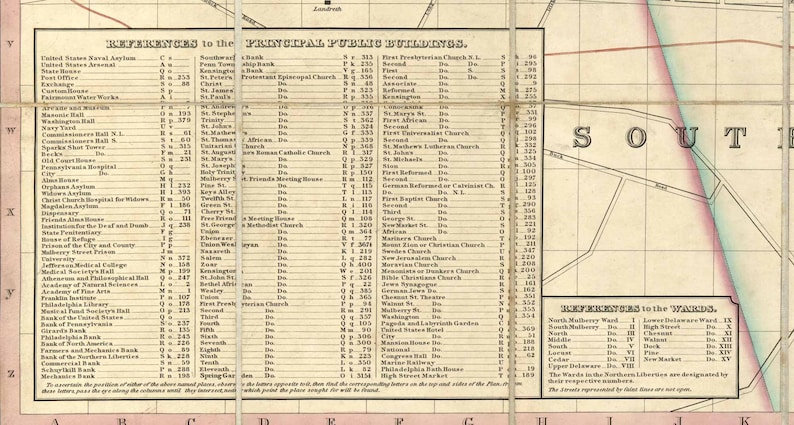 Landreth
REFERENCES to the PRINCIPAL PUBLIC BUILDINGS.
United States Naval Asylum C s
United States Arsenal A u
State House Q o
Post Office R n 253
Exchange S o 88
Custom House S p
Fairmount Water Works A i
Arcade and Museum P n
Masonic Hall O n 193
Washington Hall R p 379
Navy Yard U v
Commissioners Hall N.L. R s 61
Commissioners Hall S. S t 60
Sparks Shot Tower S u 315
Beck's Do. F m 21
Old Court House S n 231
Pennsylvania Hospital O q
City Do. G h
Alms House M q
Orphans Asylum H l 232
Widows Asylum H l 393
Christ Church Hospital for Widows R m 50
Magdalen Asylum F l 186
Dispensary Q o 71
Friends Alms House R o 111
Institution for the Deaf and Dumb J q 238
State Penitentiary F g
House of Refuge I g
Prison of the City and County P p
Mulberry Street Prison L m
University N n 372
Jefferson Medical College N o 158
Medical Society's Hall M p 199
Atheneum and Philosophical Hall Q o 247
Academy of Natural Sciences L o 2
Academy of Fine Arts M n 1
Franklin Institute P n 107
Philadelphia Library Q o 178
Musical Fund Society's Hall O p 213
Bank of the United States Q o
Bank of Pennsylvania S o 237
Girard's Bank R o 135
Philadelphia Bank R o 243
Bank of North America R o 226
Farmers and Mechanics Bank Q o 89
Bank of the Northern Liberties S k 228
Commercial Bank S n 59
Schuylkill Bank P n 288
Mechanics Bank R n 198
Southwark Bank S r 313
Penn Township Bank P k 235
Kensington Bank V g 165
St. Peter's Protestant Episcopal Church R q 336
Christ S n 48
St. James' P n 323
St. Paul's R p 335
St. Andrew's
St. Stephen's N n 337
Trinity S t 362
St. John's S h 324
St. Mathew's G f 333
St. Thomas' African Do. Q p 339
Unitarian Church N p 368
St. Augustine's Roman Catholic Church R l 317
St. Mary's Do. Q p 329
St. Joseph's R p 327
Holy Trinity Q p 150
Mulberry St. Friends Meeting House R m 112
Pine St. T q 115
Keys Alley T l 113
Twelfth St. L n 117
Green St. R i 118
Cherry St. Q m 114
Free Friends Meeting House Q m 108
St. George's Methodist Church R l 320
Union Q m 364
Ebenezer R t 77
Union Wesleyan V f 367½
Nazareth K l 219
Salem L q 282
Zoar Q g 400
Kensington W e 201
St. John St. S f 326
Bethel African P q 22
Wesley Do. Q q 385
Union Do. Q h 365
First Presbyterian Church P p 94
Second Do. R m 291
Third Do. Q q 357
Fourth Do. Q r 105
Fifth Do. M m 90
Sixth Do. Q p 306
Seventh Do. Q n 300
Eighth Do. R p 79
Ninth Do. K n 223
Tenth Do. L o 350
Eleventh Do. L k 82
Spring Garden Do. O i 315½
First Presbyterian Church N.L. S k 96
Second Do. Do. P i 295
First Do. S. S s 98
Second Do. Do. S s 292
Associate Do. M n 9
Reformed Do. M n 275
Kensington Do. X d 255
First African Do. P r 99
Second Do. T m 296
First Universalist Church Q q 102
Second Do. Q k 299
St. Mathew's Lutheran Church Q k 332
St. John's Do. Q m 325
St. Michael's Do. Q m 334
Sion Do. Q m 305
First Reformed Do. Q l 100
Second Do. Q l 297
German Reformed or Calvinist Ch. R l 125
Do. Do. N.L. R i 128
First Baptist Church S m 93
Second Do. T g 290
Third Do. S s 356
George St. Do. O n 283
New Market St. Do. S i 221
African Do. O l 92
Mariners Church T p 192
Mount Zion or Christian Church O p 211
Swedes Church U t 347
New Jerusalem Church N m 220
Moravian Church R m 200
Menonists or Dunkers Church Q l 200
Bible Christians Church S f 28
Jews Synagogue R l 161
German Jews Do. S m 162
Chesnut St. Theatre P n 351
Walnut St. Do. O o 352
Mulberry St. Do. O n 353
Washington Do. Q i 354
Pagoda and Labyrinth Garden C f
United States Hotel Q o 369
City Do. S m 51
Mansion House Do. R p 188
National Do. Q o 218
Congress Hall Do. R o 62
Marine Railway U i
Philadelphia Bath House P o 19
High Street Market T n 189
To ascertain the position of either of the above named places, observe the letters opposite to it, then find the corresponding letters on the top and sides of the Plan, draw
these letters, pass the eye along the columns until they intersect, near which point the place sought for will be found.
SOUTH
Buck
Road
Road
REFERENCES to the WARDS.
North Mulberry Ward I Lower Delaware Ward IX
South Mulberry Do. II High Street Do. X
North Do. III Chesnut Do. XI
Middle Do. IV Walnut Do. XII
South Do. V Dock Do. XIII
Locust Do. VI Pine Do. XIV
Cedar Do. VII New Market Do. XV
Upper Delaware Do. VIII
The Wards in the Northern Liberties are designated by
their respective numbers.
The Streets represented by faint lines are not open.
V
W
X
Y
Z
A B C D E F G H I J K